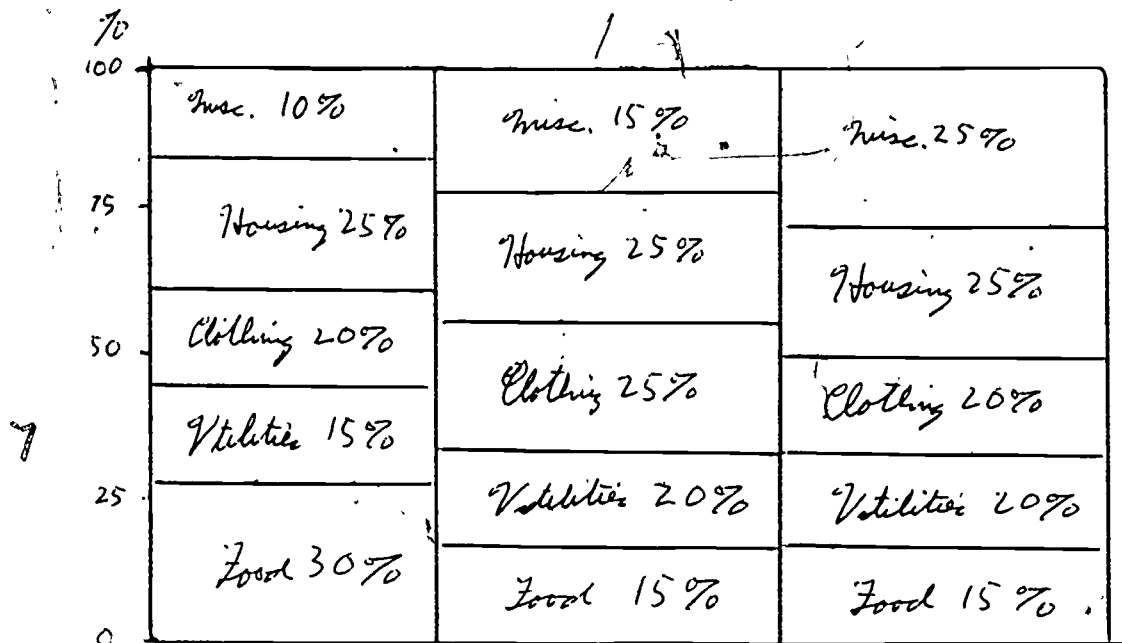 %
100
75
50
25
0
Misc. 10%
Housing 25%
Clothing 20%
Utilities 15%
Food 30%
Misc. 15%
Housing 25%
Clothing 25%
Utilities 20%
Food 15%
Misc. 25%
Housing 25%
Clothing 20%
Utilities 20%
Food 15%.